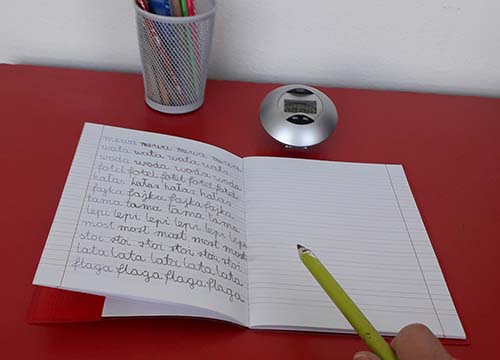 mewa mewa mewa mewa
wata wata wata wata
woda woda woda woda
fotel fotel fotel fotel
hałas hałas hałas hałas
fajka fajka fajka fajka
tama tama tama tama
lepi lepi lepi lepi lepi
most most most most most
stoi stoi stoi stoi stoi
lata lata lata lata lata
flaga flaga flaga flaga